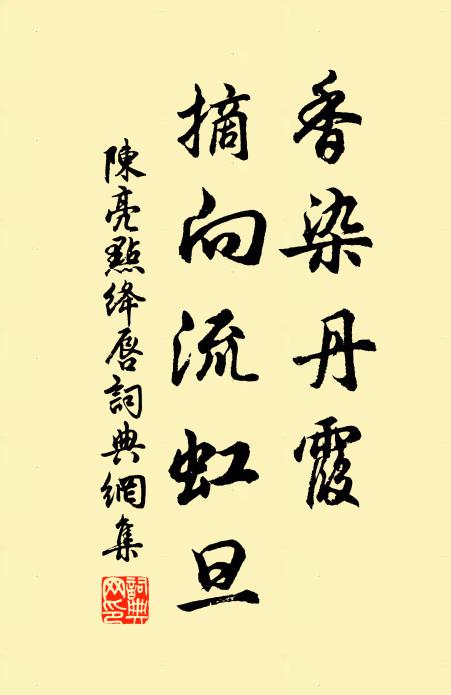 香染丹霞
摘向流虹旦
陳亮點絳唇詞典網集
詞典
网印